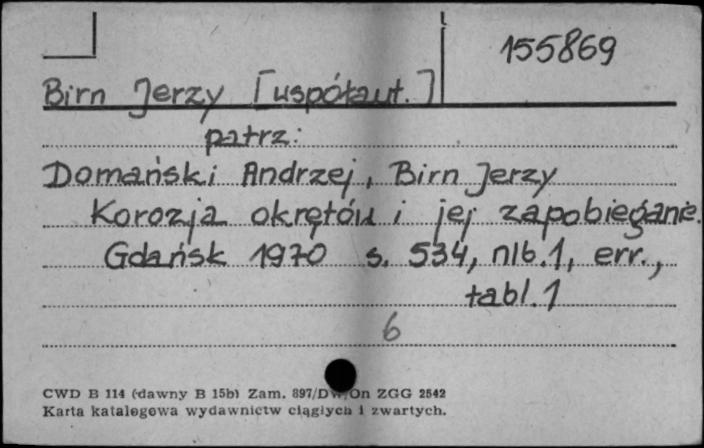 155869
Birn Jerzy [współaut.]
patrz:
Domański Andrzej, Birn Jerzy
Korozja okrętów i jej zapobieganie.
Gdańsk 1970 s. 534, nlb. 1, err.,
tabl. 1
6
CWD B 114 (dawny B 15b) Zam. 897/DW/On ZGG 2542
Karta katalogowa wydawnictw ciągłych i zwartych.